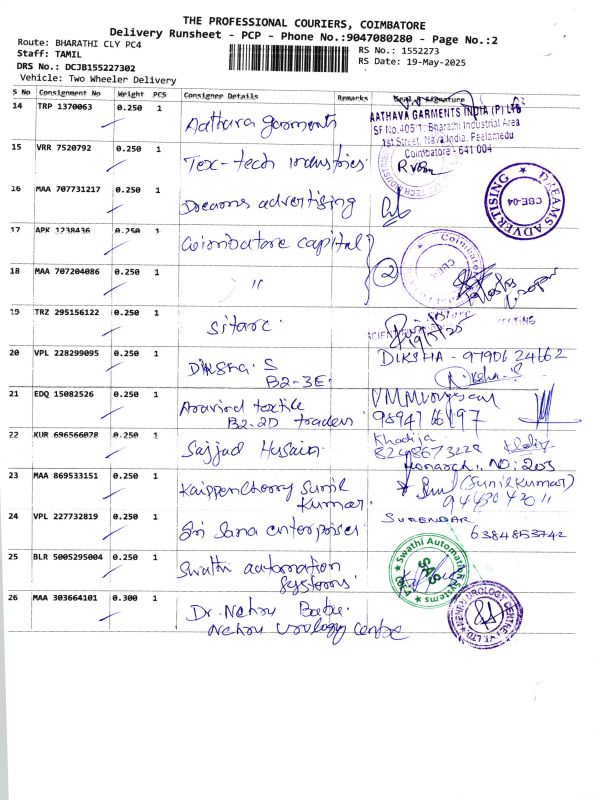 THE PROFESSIONAL COURIERS, COIMBATORE
Delivery Runsheet - PCP - Phone No.:9047080280 - Page No.:2
Route: BHARATHI CLY PC4
Staff: TAMIL
DRS No.: DCJB155227302
Vehicle: Two Wheeler Delivery
RS No.: 1552273
RS Date: 19-May-2025
S No Consignment No Weight PCS Consignee Details Remarks Seal & Signature
14 TRP 1370063 0.250 1 Aathava garments
AATHAVA GARMENTS INDIA (P) LTD
SF No.405/1, Bharathi Industrial Area
1st Street, Nava India, Peelamedu
Coimbatore - 641 004
15 VRR 7520792 0.250 1 Tex-tech industries
16 MAA 707731217 0.250 1 Dreams advertising
DREAMS ADVERTISING
CBE-04
17 APK 1238436 0.250 1 Coimbatore capital
2
Coimbatore
18 MAA 707204086 0.250 1 "
19 TRZ 295156122 0.250 1 Sitarc
19/5/25
20 VPL 228299095 0.250 1 Diksha. S
B2-3E
DIKSHA - 97906 24662
Diksha.S
21 EDQ 15082526 0.250 1 Aravind textile
B2-2D traders
9894766197
22 KUR 696566078 0.250 1 Sajjad Husain
Khadija
8248673228
Monarch, NO: 203
23 MAA 869533151 0.250 1 Kaippencherry Sunil
Kumar
(Sunil Kumar)
24 VPL 227732819 0.250 1 Sri Sana enterprises
SURENDAR
6384853742
25 BLR 5005295004 0.250 1 Swathi automation
Systems
Swathi Automation Systems
SAS
26 MAA 303664101 0.300 1 Dr. Nehru Babu
Nehru Urology Centre
NEHRU UROLOGY CENTRE PVT LTD